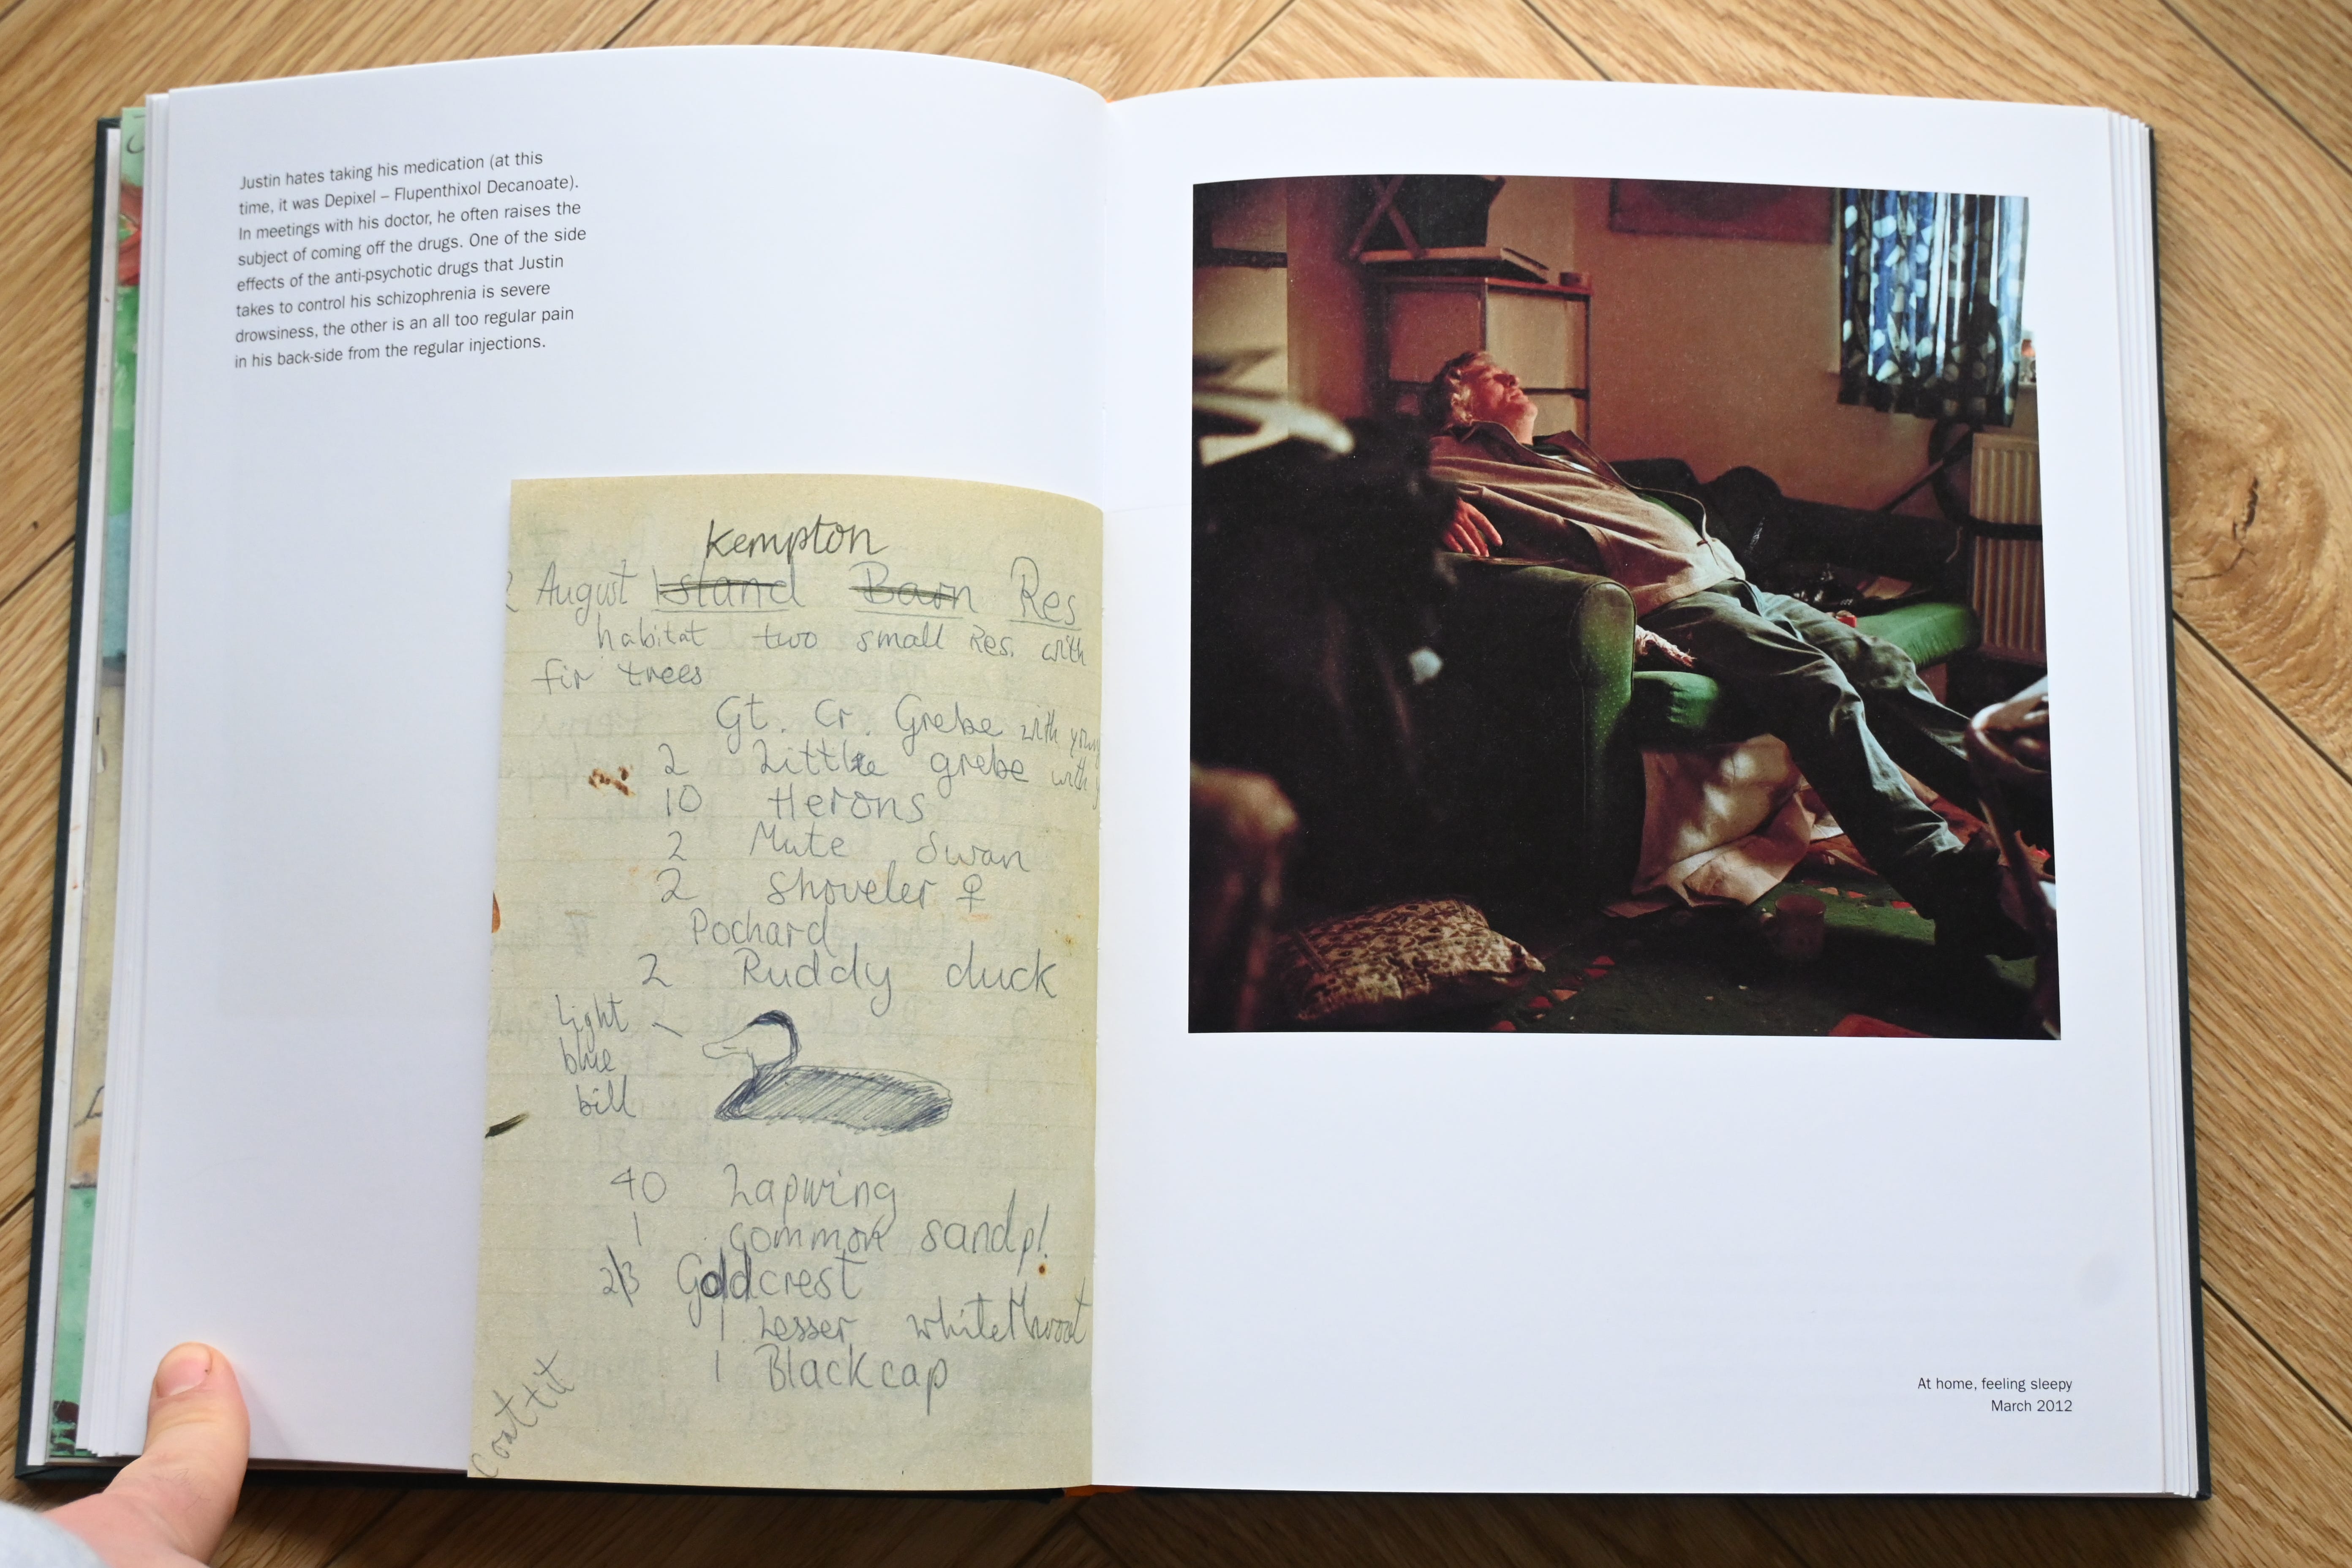 Justin hates taking his medication (at this
time, it was Depixel – Flupenthixol Decanoate).
In meetings with his doctor, he often raises the
subject of coming off the drugs. One of the side
effects of the anti-psychotic drugs that Justin
takes to control his schizophrenia is severe
drowsiness, the other is an all too regular pain
in his back-side from the regular injections.
Kempton
August Island Barn Res
habitat two small Res. with
fir trees
Gt. Cr. Grebe with
2 Little grebe with
10 Herons
2 Mute Swan
2 Shoveler ♀
Pochard
2 Ruddy duck
Light
blue
bill
40 Lapwing
1 common sandp!
2/3 Goldcrest
1 Lesser whitethroat
1 Blackcap
coattit
At home, feeling sleepy
March 2012